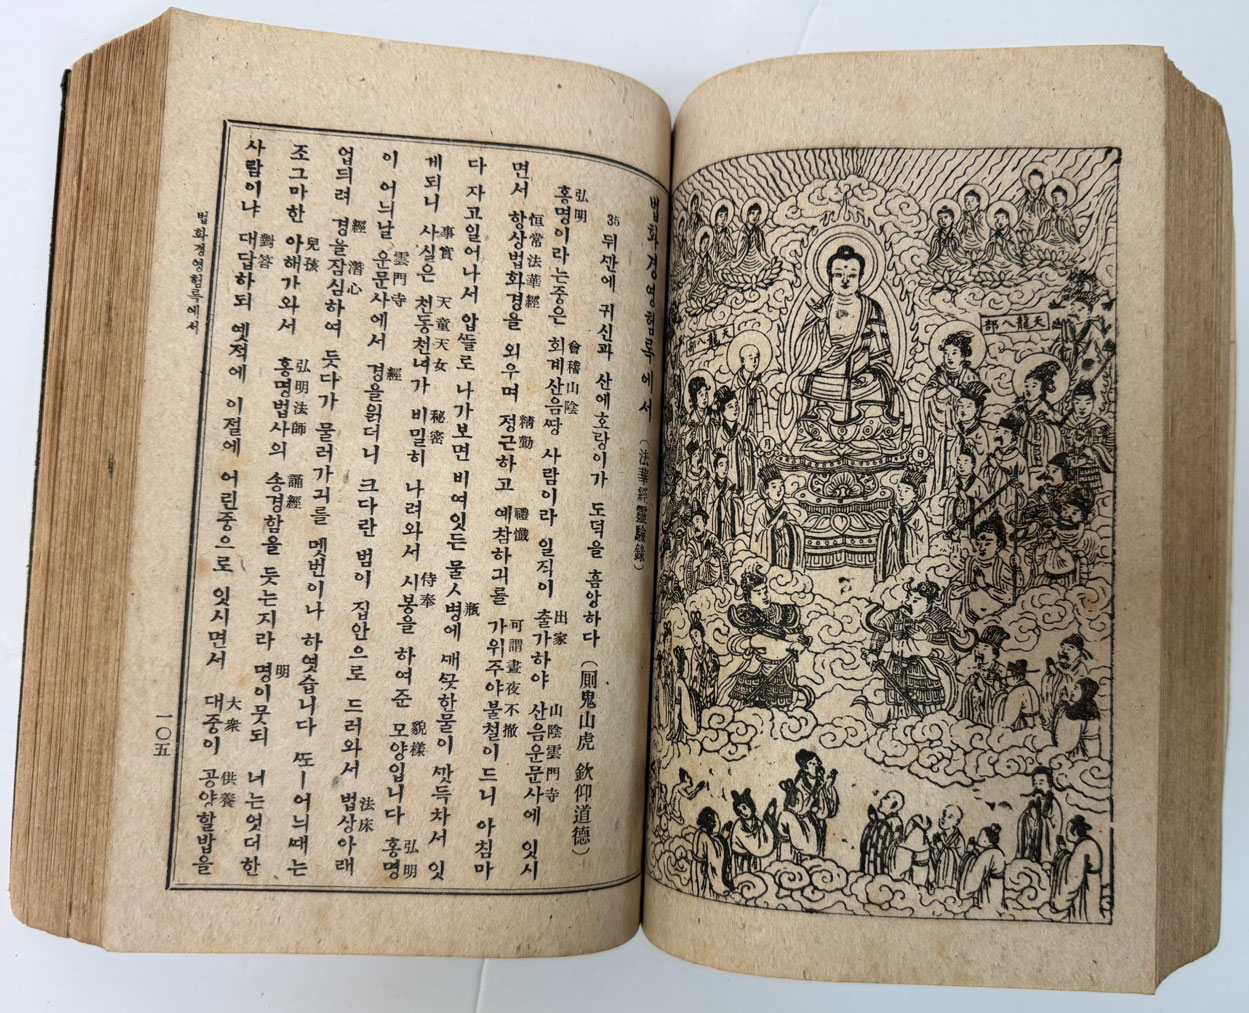 天龍八部
법화경영험록에서(法華經靈驗錄)
35 뒤깐에 귀신과 산에호랑이가 도덕을 흠앙하다 (厠鬼山虎 欽仰道德)
弘明 會稽山陰 出家 山陰雲門寺
홍명이라는중은 회계산음땅 사람이라 일직이 출가하야 산음운문사에 잇시
恒常法華經 精勤 禮懺 可謂晝夜不撤
면서 항상법화경을 외우며 정근하고 예참하긔를 가위주야불철이드니 아침마
瓶
다 자고일어나서 압뜰로 나가보면 비여잇든 물ㅅ병에 새ᄭᅳᆺ한물이 깟득차서 잇
事實 天童天女 秘密 侍奉 貌樣 弘明
게되니 사실은 천동천녀가 비밀히 나려와서 시봉을 하여준 모양입니다 홍명
雲門寺 經 法床
이 어늬날 운문사에서 경을읽더니 크다란 범이 집안으로 드러와서 법상아래
經 潛心
업듸려 경을잠심하여 듯다가 물러가긔를 멧번이나 하엿습니다 ᄯᅩㅡ어늬ᄯᅢ는
兒孩 弘明法師 誦經 明
조그마한 아해가와서 홍명법사의 송경함을 듯는지라 명이뭇되 너는엇더한
對答 大衆 供養
사람이냐 대답하되 옛적에 이절에 어린중으로 잇시면서 대중이 공양할밥을
법화경영험록에서
一〇五